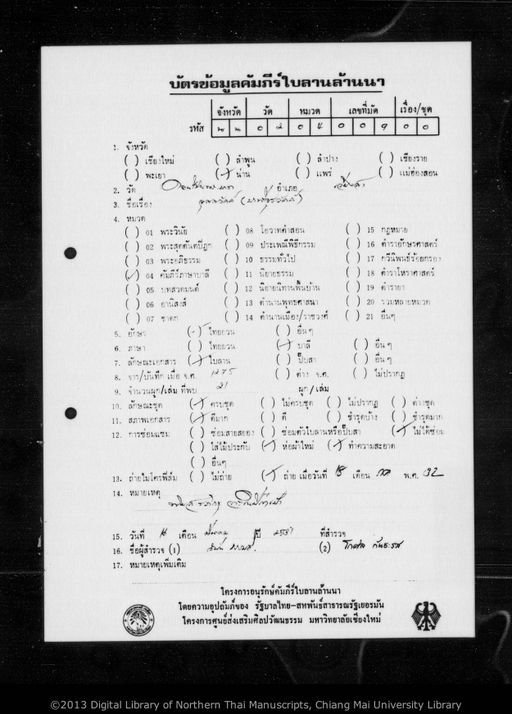 บัตรข้อมูลคัมภีร์ใบลานล้านนา
จังหวัด วัด หมวด เลขที่มัด เรื่อง/ชุด
รหัส
1. จังหวัด
( ) เชียงใหม่ ( ) ลำพูน ( ) ลำปาง ( ) เชียงราย
( ) พะเยา (/) น่าน ( ) แพร่ ( ) แม่ฮ่องสอน
2. วัด อำเภอ
3. ชื่อเรื่อง
4. หมวด
( ) 01 พระวินัย ( ) 08 โอวาทคำสอน ( ) 15 กฎหมาย
( ) 02 พระสุตตันตปิฎก ( ) 09 ประเพณีพิธีกรรม ( ) 16 ตำราอักษรศาสตร์
( ) 03 พระอภิธรรม ( ) 10 ธรรมทั่วไป ( ) 17 กวีนิพนธ์ร้อยกรอง
(/) 04 คัมภีร์ภาษาบาลี ( ) 11 นิยายธรรม ( ) 18 ตำราโหราศาสตร์
( ) 05 บทสวดมนต์ ( ) 12 นิยายนิทานพื้นบ้าน ( ) 19 ตำรายา
( ) 06 อานิสงส์ ( ) 13 ตำนานพุทธศาสนา ( ) 20 รวมหลายหมวด
( ) 07 ชาดก ( ) 14 ตำนานเมือง/ราชวงศ์ ( ) 21 อื่นๆ
5. อักษร (/) ไทยยวน ( ) อื่นๆ
6. ภาษา ( ) ไทยยวน (/) บาลี ( ) อื่นๆ
7. ลักษณะเอกสาร (/) ใบลาน ( ) ปั๊บสา ( ) อื่นๆ
8. จาร/บันทึก เมื่อ จ.ศ. 1275 ( ) ค่าง จ.ศ. ( ) ไม่ปรากฏ
9. จำนวนผูก/เล่ม ที่พบ 21 ผูก / เล่ม
10. ลักษณะชุด (/) ครบชุด ( ) ไม่ครบชุด ( ) ไม่ปรากฏ ( ) ค่างชุด
11. สภาพเอกสาร (/) ดีมาก ( ) ดี ( ) ชำรุดบ้าง ( ) ชำรุดมาก
12. การซ่อมแซม ( ) ซ่อมสายสยอง ( ) ซ่อมตัวใบลานหรือปั๊บสา (/) ไม่ได้ซ่อม
( ) ใส่ไม้ประกับ (/) ห่อผ้าใหม่ (/) ทำความสะอาด
( ) อื่นๆ
13. ถ่ายไมโครฟิล์ม ( ) ไม่ถ่าย (/) ถ่าย เมื่อวันที่ 18 เดือน พ.ศ. 32
14. หมายเหตุ
15. วันที่ เดือน ปี 2531 ที่สำรวจ
16. ชื่อผู้สำรวจ (1) (2)
17. หมายเหตุเพิ่มเติม
โครงการอนุรักษ์คัมภีร์ใบลานล้านนา
โดยความอุปถัมภ์ของ รัฐบาลไทย-สหพันธ์สาธารณรัฐเยอรมัน
โครงการศูนย์ส่งเสริมศิลปวัฒนธรรม มหาวิทยาลัยเชียงใหม่
©2013 Digital Library of Northern Thai Manuscripts, Chiang Mai University Library